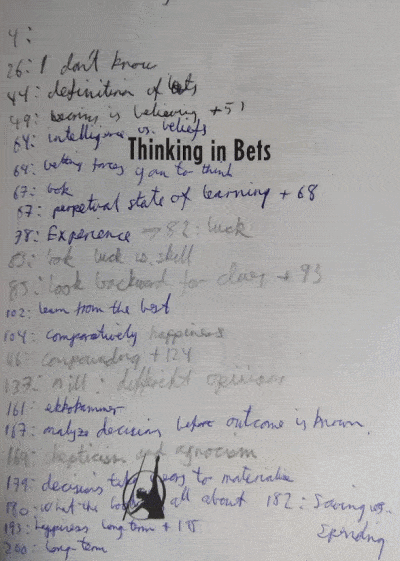 4:
26: I don't know
44: definition of bets
49: hearing is believing + 51
64: intelligence vs. beliefs
Thinking in Bets
64: betting forces you to think
67: bok
67: perpetual state of learning + 68
78: Experience → 82: luck
83: bok luck vs. skill
85: look backward for clary + 93
102: learn from the best
104: comparatively happiness
116: compounding + 124
137: mill: different opinions
161: ekkokammer
167: analyze decisions before outcome is known.
169: skepticism and agnocism
179: decisions take years to materialise
180: what the book all about 182: Saving vs. Spending
193: happiness long term + 195
200: long-term